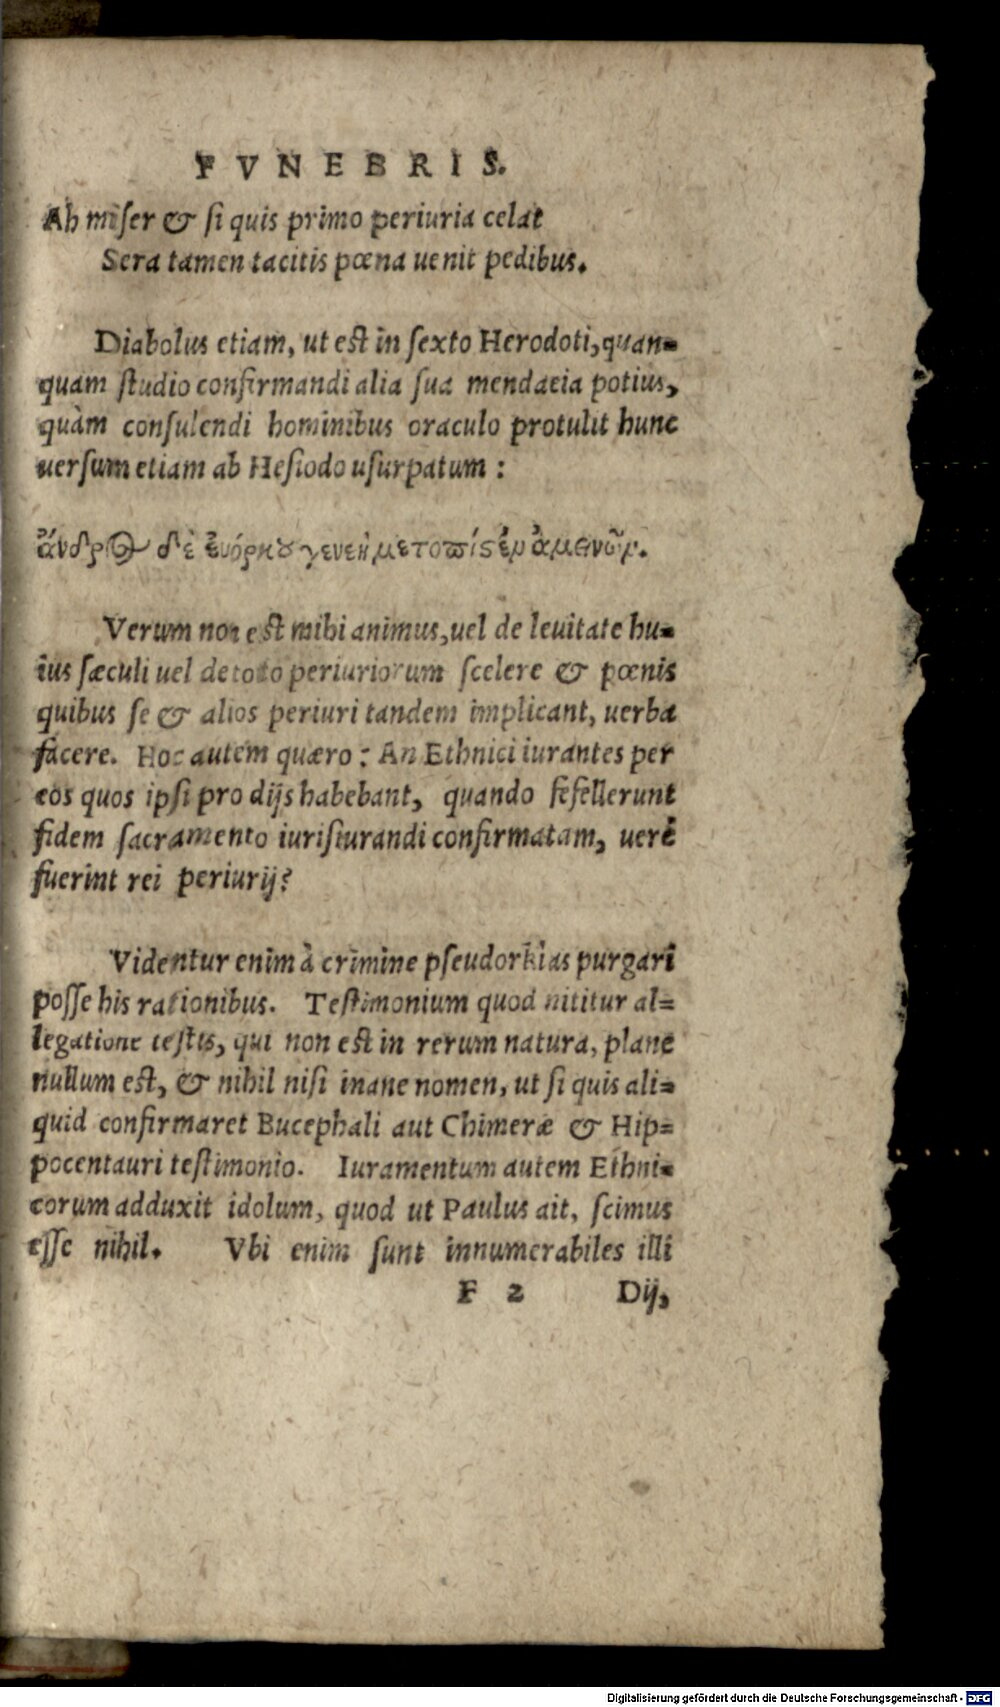 FVNEBRIS.
Ah miser & si quis primo periuria celat
Sera tamen tacitis pœna uenit pedibus.
Diabolus etiam, ut est in sexto Herodoti, quan=
quam studio confirmandi alia sua mendacia potius,
quàm consulendi hominibus oraculo protulit hunc
uersum etiam ab Hesiodo usurpatum:
ἄνδρος δὲ ἐυόρκου γενεὴ μετοπίσεν ἀμείνων.
Verum non est mihi animus, uel de leuitate hu=
ius sæculi uel de toto periuriorum scelere & pœnis
quibus se & alios periuri tandem implicant, uerba
facere. Hoc autem quæro: An Ethnici iurantes per
eos quos ipsi pro dijs habebant, quando fefellerunt
fidem sacramento iurisiurandi confirmatam, uerè
fuerint rei periurij?
Videntur enim à crimine pseudorkias purgari
posse his rationibus. Testimonium quod nititur al=
legatione testis, qui non est in rerum natura, plane
nullum est, & nihil nisi inane nomen, ut si quis ali=
quid confirmaret Bucephali aut Chimeræ & Hip=
pocentauri testimonio. Iuramentum autem Ethni=
corum adduxit idolum, quod ut Paulus ait, scimus
esse nihil. Vbi enim sunt innumerabiles illi
F 2 Dij,
Digitalisierung gefördert durch die Deutsche Forschungsgemeinschaft - DFG